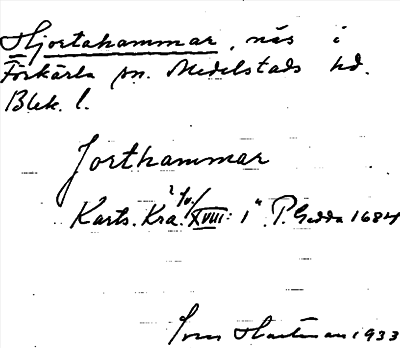 Hjortahammar, näs i
Förkärla sn. Medelstads hd.
Blek. l.
Jorthammar
Karts. Kra. XVIII: 1 P. Gedda 1684
Hartman 1933